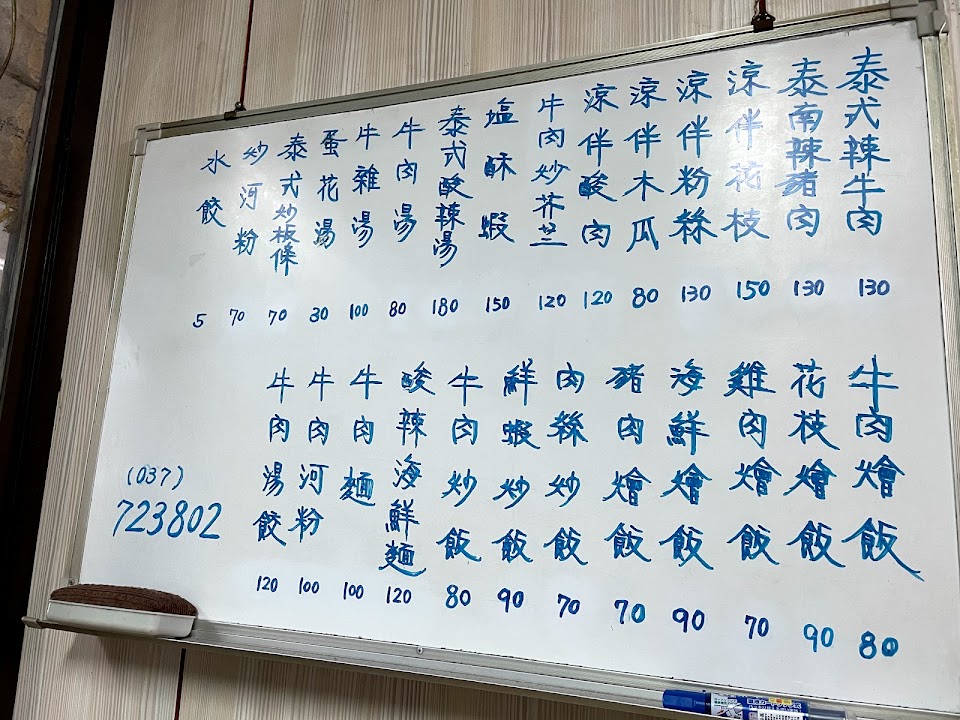 泰式辣牛肉 130
泰南辣豬肉 130
涼伴花枝 150
涼伴粉絲 130
涼伴木瓜 80
涼伴酸肉 120
牛肉炒芥兰 120
塩酥蝦 150
泰式酸辣湯 180
牛肉湯 80
牛雜湯 100
蛋花湯 30
泰式炒板條 70
炒河粉 70
水餃 5
牛肉燴飯 80
花枝燴飯 90
雞肉燴飯 70
海鮮燴飯 90
豬肉燴飯 70
肉絲炒飯 70
鮮蝦炒飯 90
牛肉炒飯 80
酸辣海鮮麵 120
牛肉麵 100
牛肉河粉 100
牛肉湯餃 120
(037)
723802